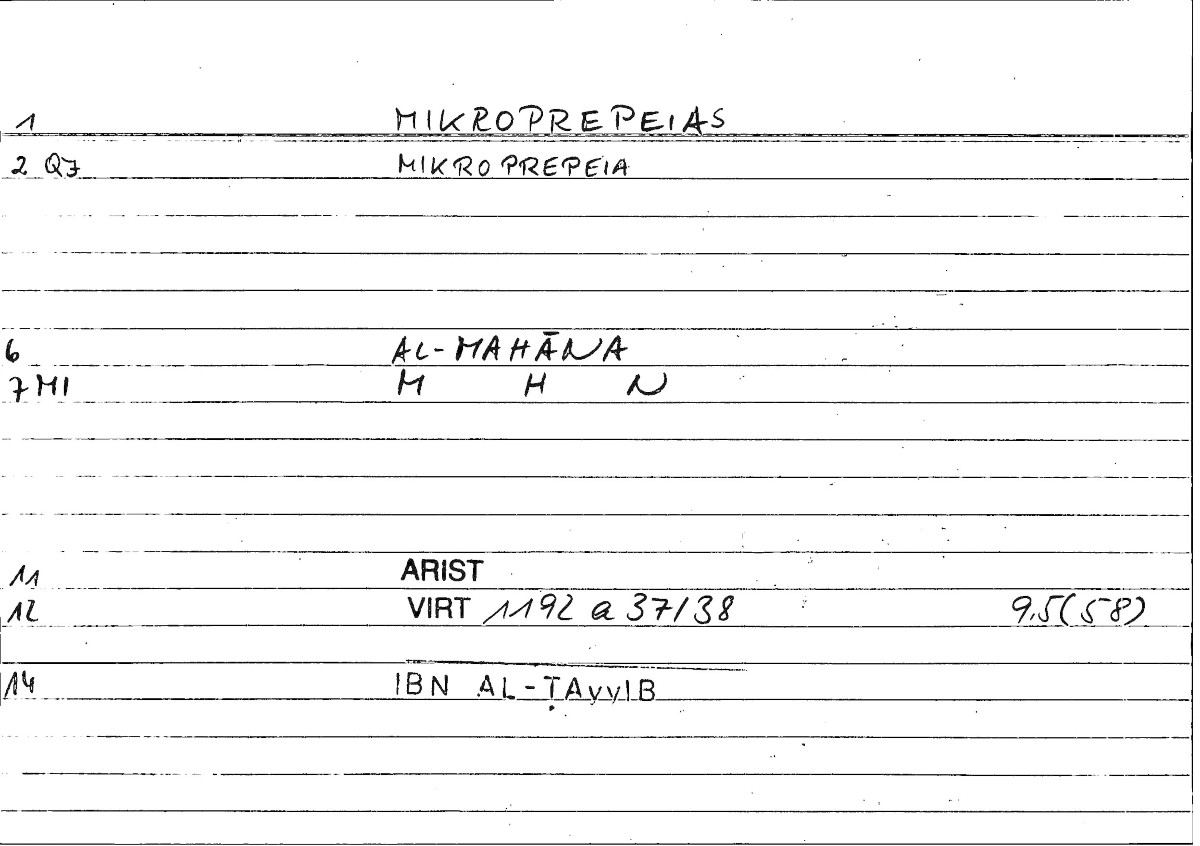 1 MIKROPREPEIAS
2 Q7 MIKROPREPEIA
6 AL-MAHĀNA
7 MI M H N
11 ARIST
12 VIRT 1192 a 37/38 9,5(58)
14 IBN AL-ṬAyyIB